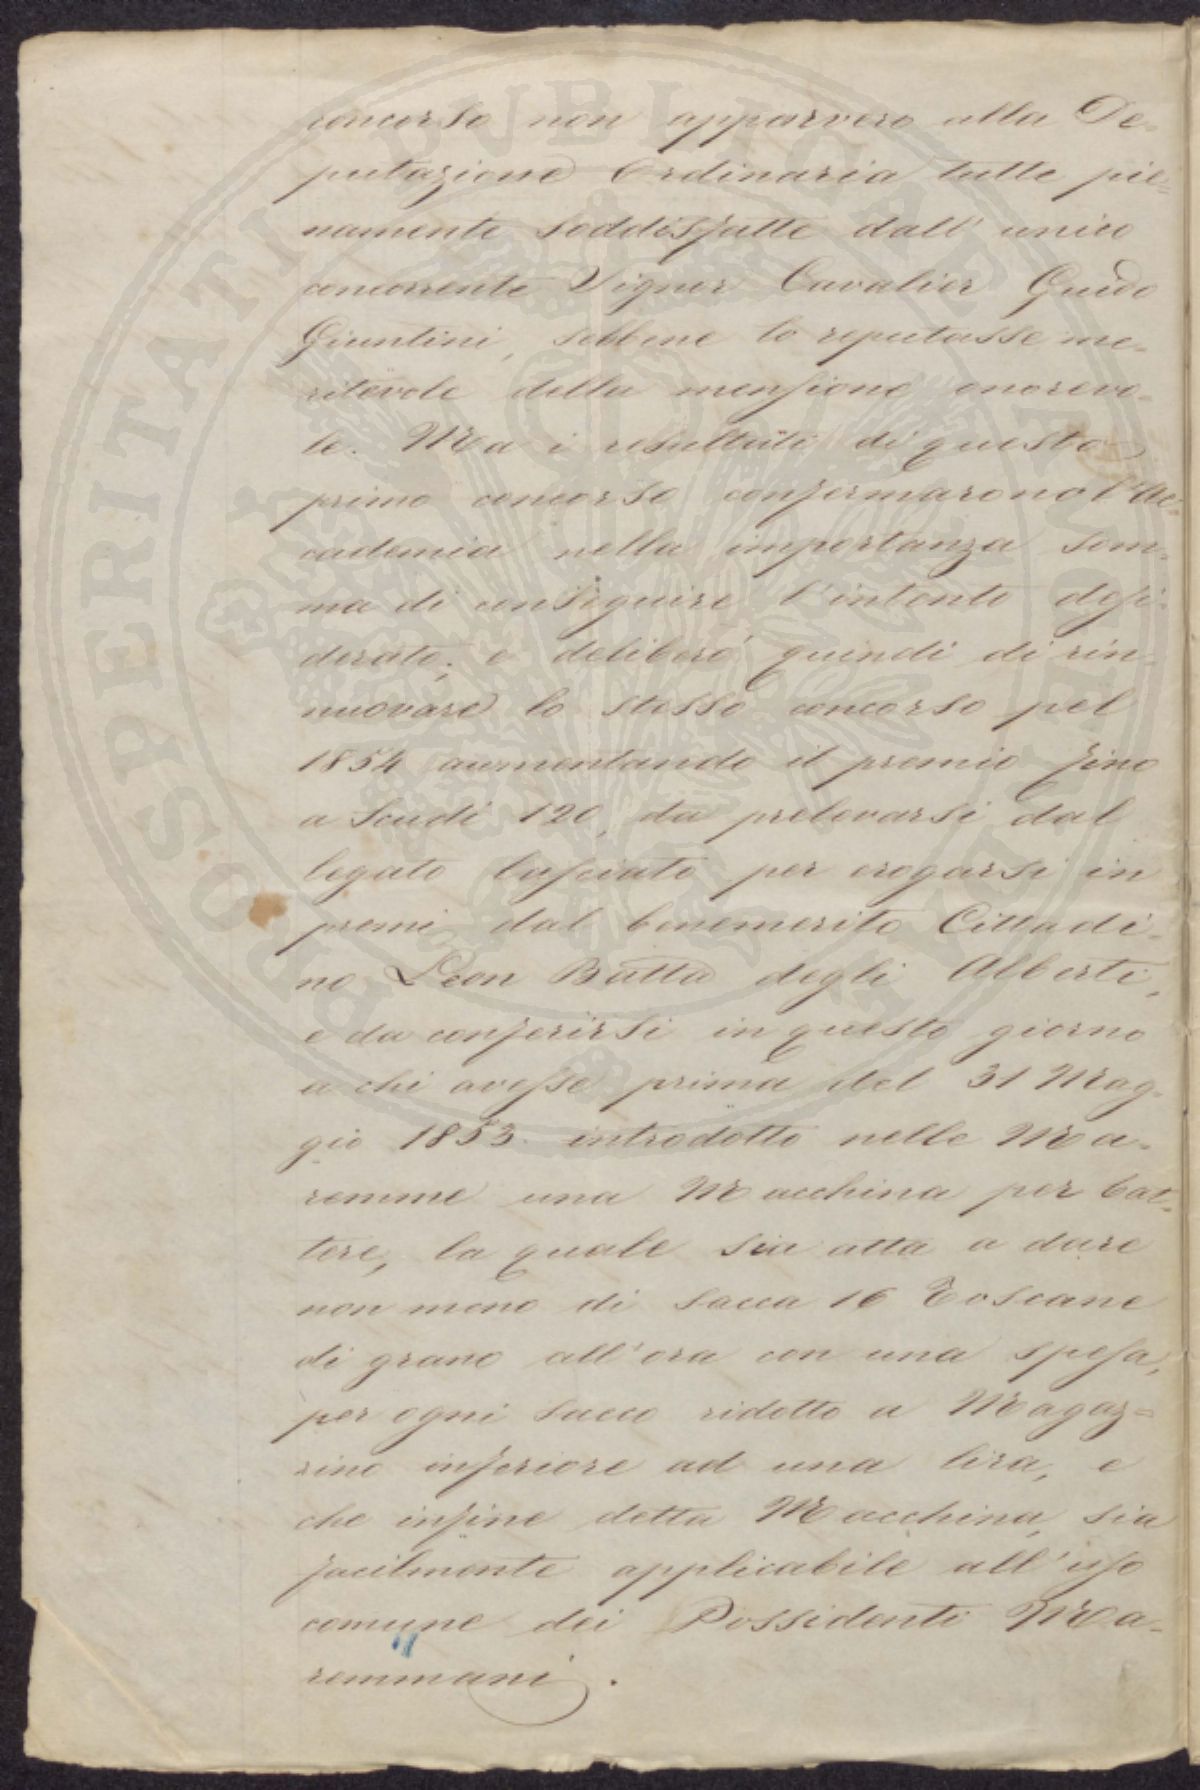 concorso non apparvero alla De-
putazione Ordinaria tutte pie-
namente soddisfatte dall' unico
concorrente Signor Cavalier Guido
Giuntini, sebbene lo reputasse me-
ritevole della menzione onorevo-
le. Ma i resultati di questo
primo concorso confermarono l'Ac-
cademia nella importanza som-
ma di conseguire l'intento desi-
derato; e deliberò quindi di rin-
nuovare lo stesso concorso pel
1854 aumentando il premio fino
a Scudi 120, da prelevarsi dal
legato lasciato per erogarsi in
premi dal benemerito Cittadi-
no Leon Batta degli Alberti,
e da conferirsi in questo giorno
a chi avesse prima del 31 Mag-
gio 1853 introdotto nelle Ma-
remme una Macchina per bat-
tere, la quale sia atta a dare
non meno di sacca 16 Toscane
di grano all'ora con una spesa,
per ogni sacco ridotto a Magaz=
zino inferiore ad una lira, e
che infine detta Macchina, sia
facilmente applicabile all'uso
comune dei Possidenti Ma-
remmani.
PROSPERITATI PUBLICAE AUGENDAE